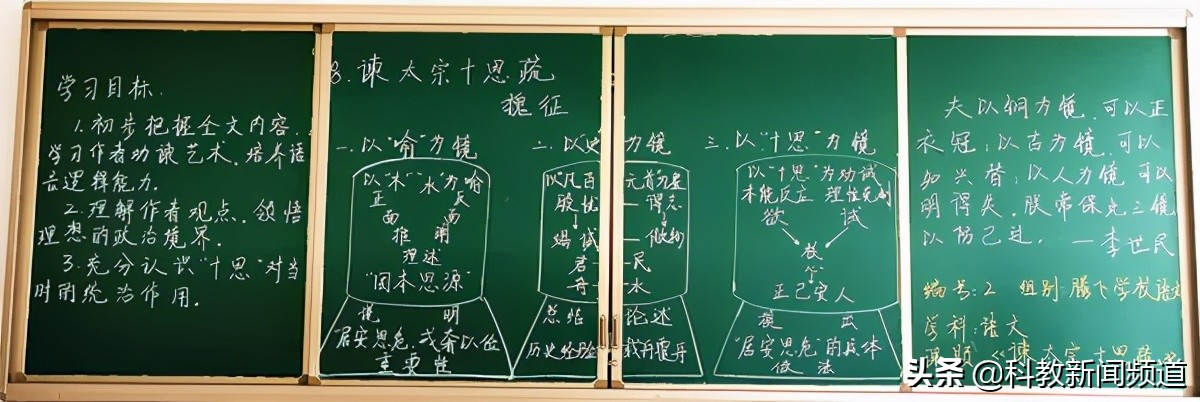 学习目标.
1.初步把握全文内容,
学习作者劝谏艺术,培养语
言逻辑能力.
2.理解作者观点,领悟
理想的政治境界.
3.充分认识"十思"对当
时的统治作用.
8.谏太宗十思疏
魏征
一.以"喻"为镜
以"木""水"为喻
正 反
面 面
推 明
理 述
"固本思源"
说 明
"居安思危,戒奢以俭
重要性
二.以"史"为镜
君 — 民
舟 — 水
总结 论述
历史经验 载舟覆舟
三.以"十思"为镜
以"十思"为劝诫
本能反应 理性克制
欲 诫
正己安人
提 出
"居安思危"的具体
做法
夫以铜为镜,可以正
衣冠;以古为镜,可以
知兴替;以人为镜可以
明得失.朕常保此三镜
以防己过. —李世民
编号:2 组别:
学科:语文
课题《谏太宗十思疏》
头条 @科教新闻频道